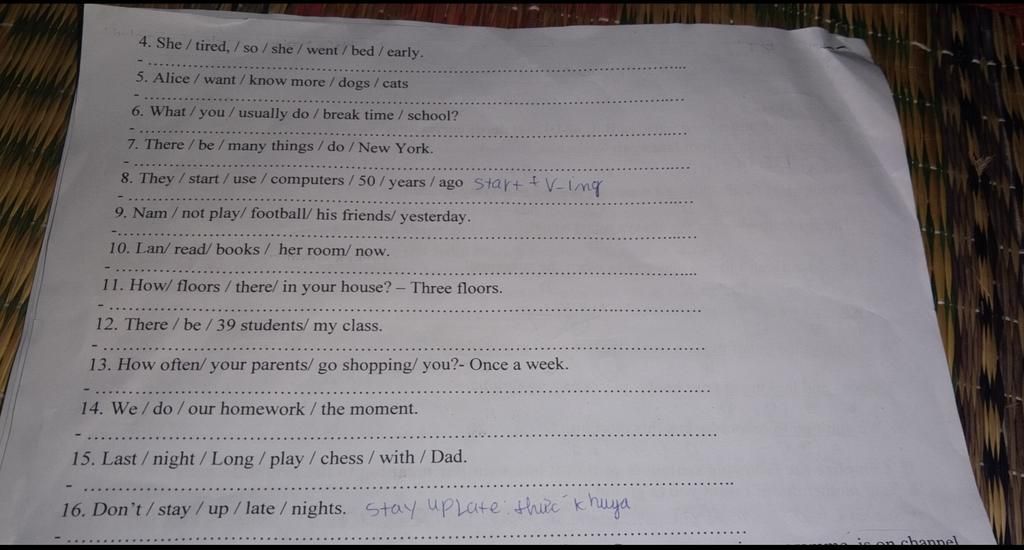 4. She / tired, / so / she / went / bed / early.
- ........................................................................
5. Alice / want / know more / dogs / cats
- ........................................................................
6. What / you / usually do / break time / school?
- ........................................................................
7. There / be / many things / do / New York.
- ........................................................................
8. They / start / use / computers / 50 / years / ago start + V-ing
- ........................................................................
9. Nam / not play/ football/ his friends/ yesterday.
- ........................................................................
10. Lan/ read/ books / her room/ now.
- ........................................................................
11. How/ floors / there/ in your house? – Three floors.
- ........................................................................
12. There / be / 39 students/ my class.
- ........................................................................
13. How often/ your parents/ go shopping/ you?- Once a week.
- ........................................................................
14. We / do / our homework / the moment.
- ........................................................................
15. Last / night / Long / play / chess / with / Dad.
- ........................................................................
16. Don't / stay / up / late / nights. stay up Late : thức khuya
- ........................................................................
is on channel